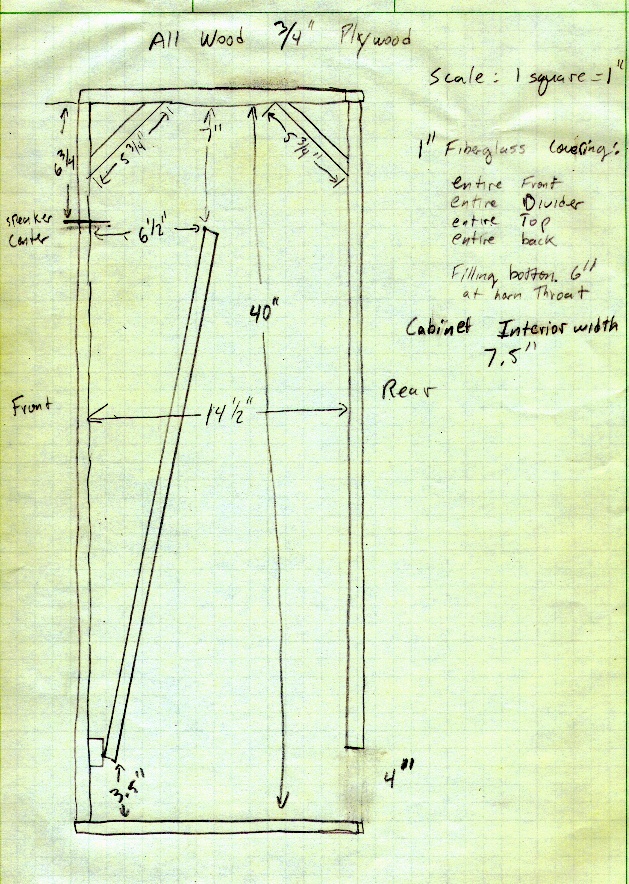 All Wood 3/4" Plywood
Scale: 1 square = 1"
6 3/4
5 3/4"
7"
5 3/4"
1" Fiberglass Covering:
entire Front
entire Divider
entire Top
entire back
Filling bottom 6"
at horn Throat
speaker
Center
6 1/2"
40"
Cabinet Interior width
7.5"
Front
14 1/2"
Rear
3.5"
4"